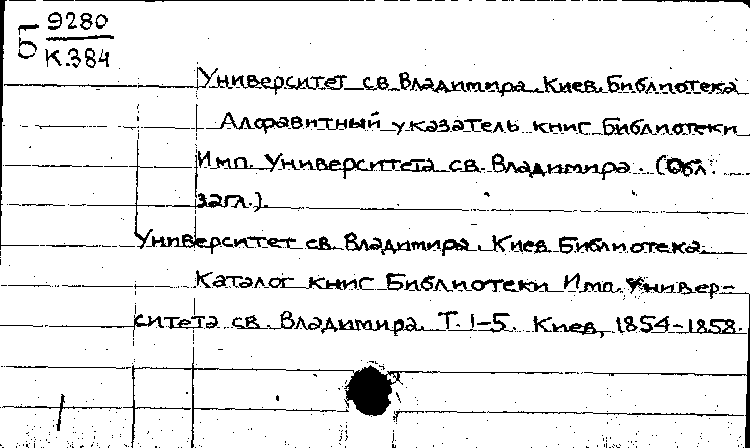 Б 9280
К.384
Университет св. Владимира. Киев. Библиотека
Алфавитный указатель книг Библиотеки
Имп. Университета св. Владимира. (Обл.
загл.).
Университет св. Владимира. Киев. Библиотека.
Каталог книг Библиотеки Имп. Универ-
ситета св. Владимира. Т. 1-5. Киев, 1854-1858.